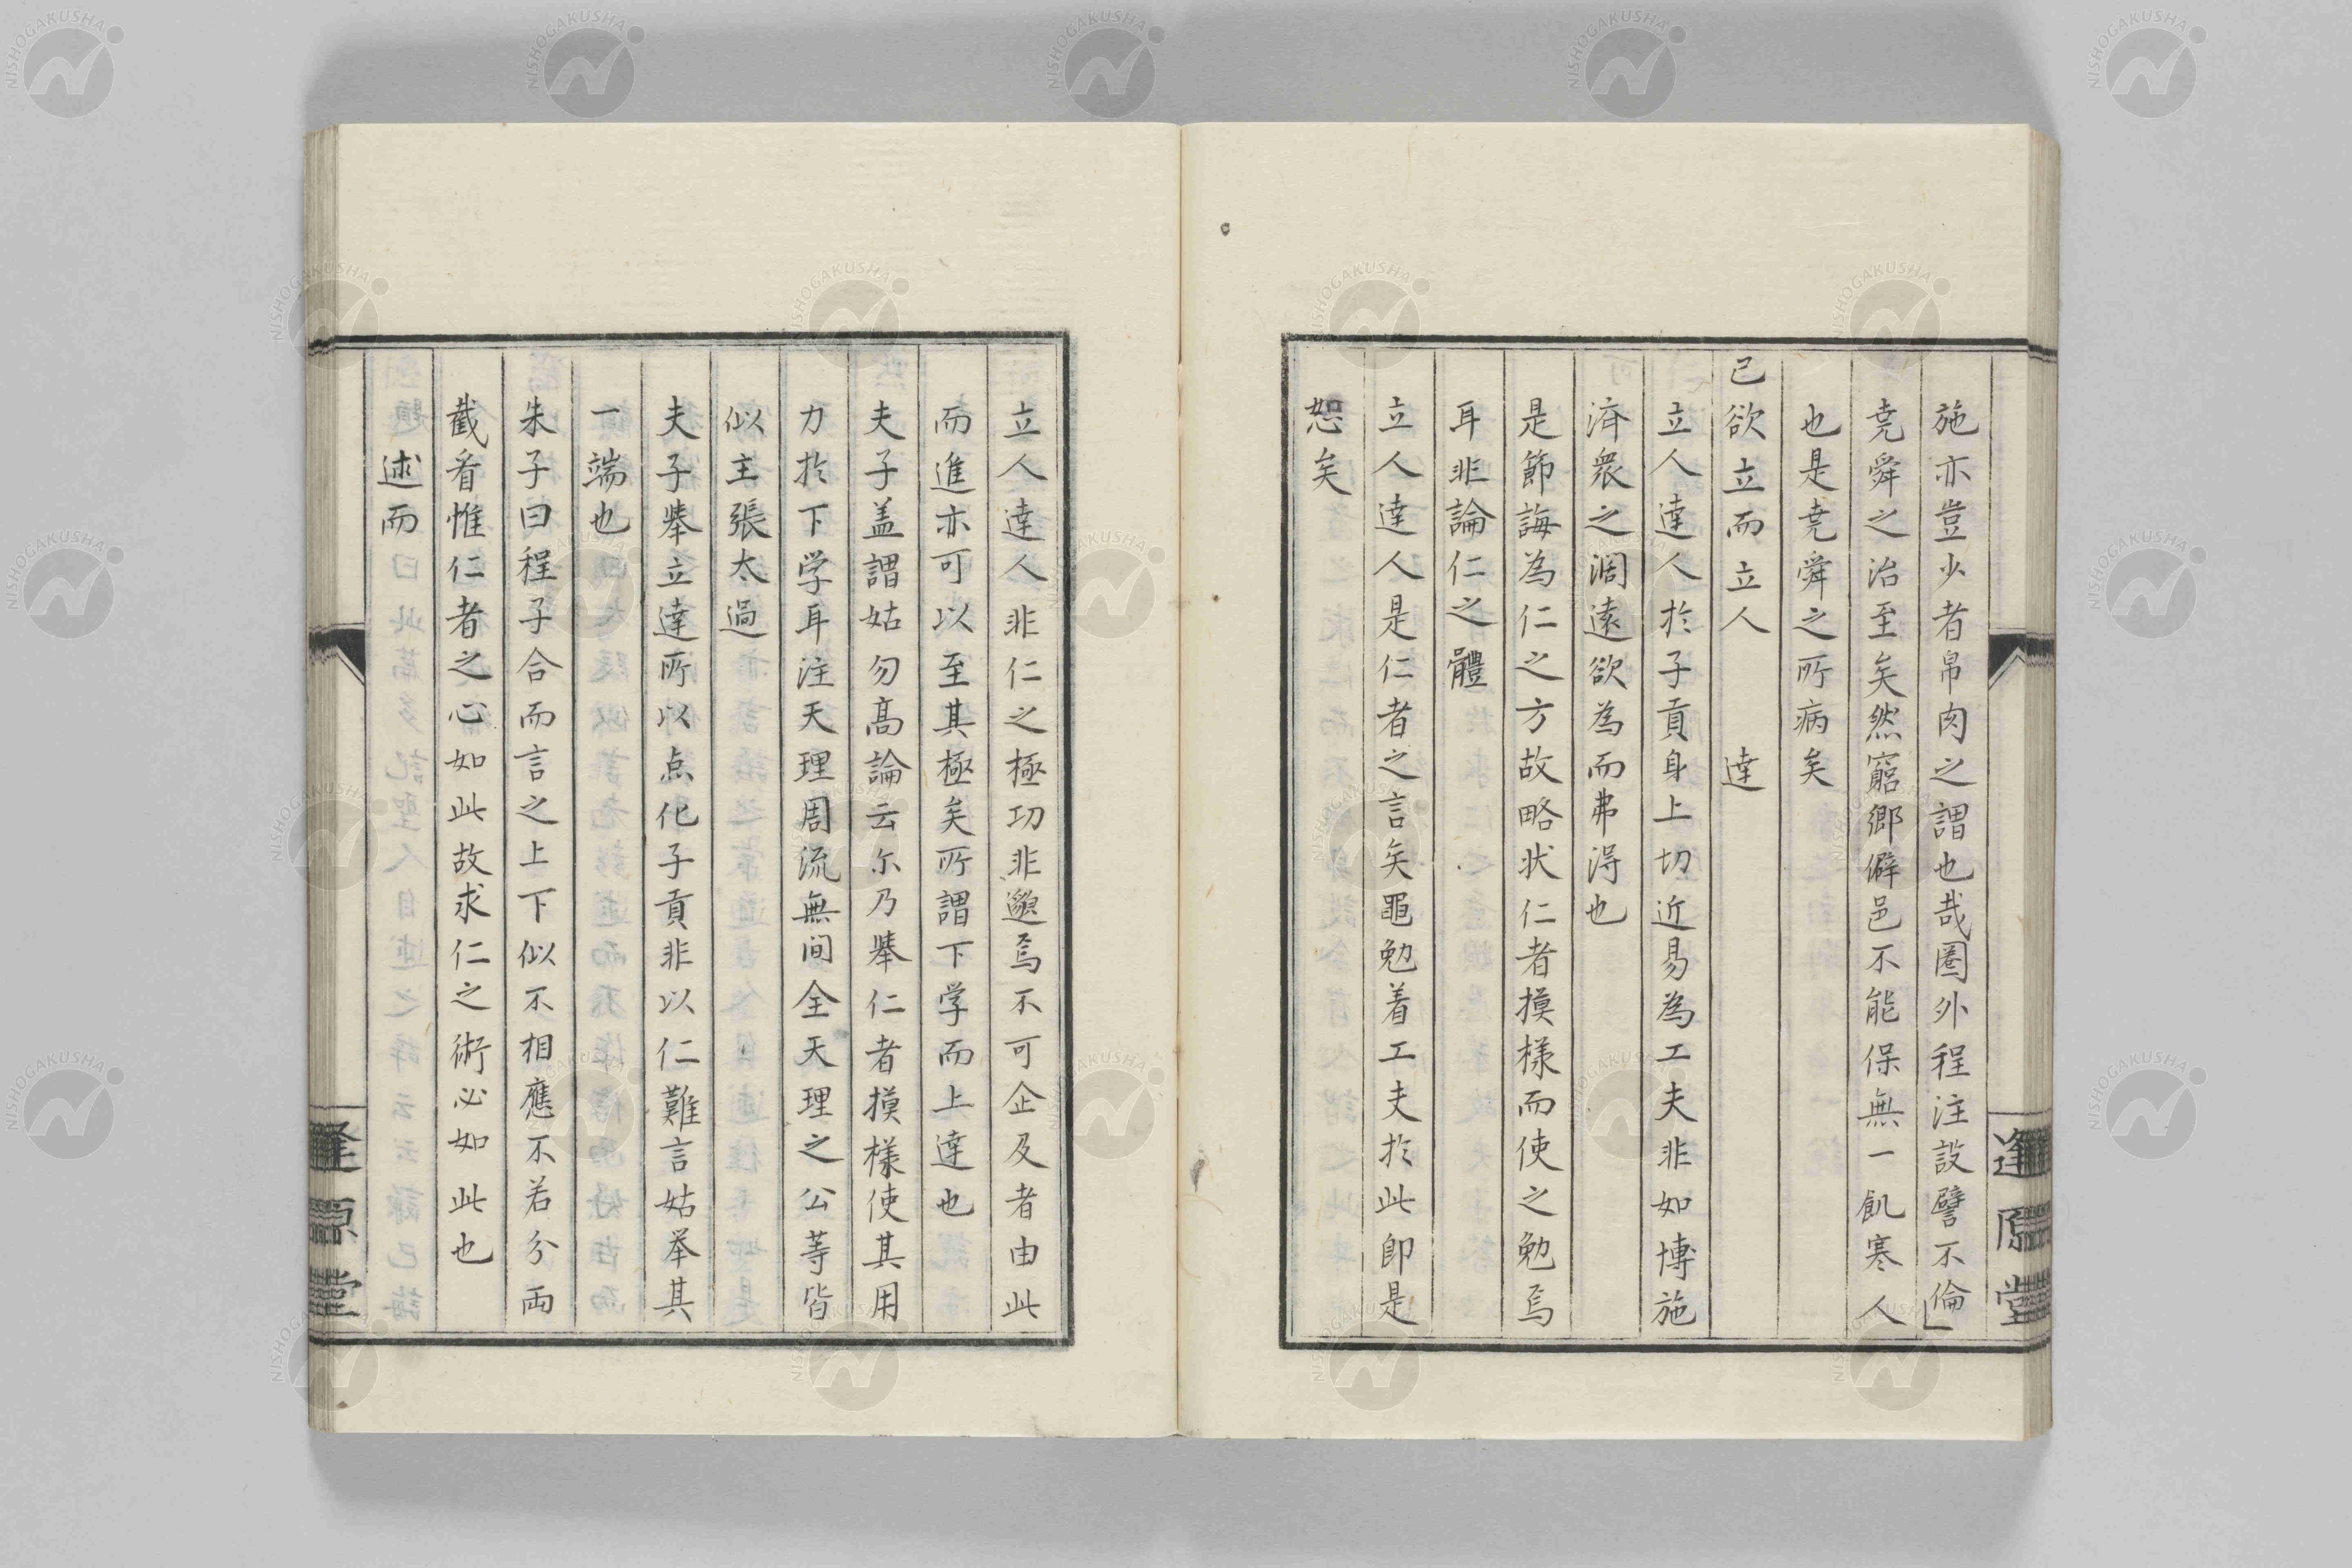 施亦豈少者帛肉之謂也哉圏外程注設譬不倫」
尭舜之治至矣然窮郷僻邑不能保無一飢寒人
也是尭舜之所病矣
己欲立而立人　達
立人達人於子貢身上切近易為工夫非如博施
済衆之濶遠欲為而弗得也
是節誨為仁之方故略状仁者摸様而使之勉焉
耳非論仁之體
立人達人是仁者之言矣黽勉着工夫於此即是
恕矣
逢原堂
立人達人非仁之極功非邈焉不可企及者由此
而進亦可以至其極矣所謂下学而上達也
夫子盖謂姑勿高論云尓乃挙仁者摸様使其用
力於下学耳注天理周流無间全天理之公等皆
似主張太過
夫子挙立達所以点化子貢非以仁難言姑挙其
一端也
朱子曰程子合而言之上下似不相應不若分両
截看惟仁者之心如此故求仁之術必如此也
述而
逢原堂
NISHOGAKUSHA